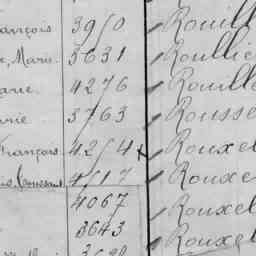 ançois 3910 Rouill
Marie 3631 Roullie
arie 4276 Rouille
rie 3763 Rousse
François 4214 Rouxel
4117 Rouxe
4067 Rouxel
3643 Rouxel